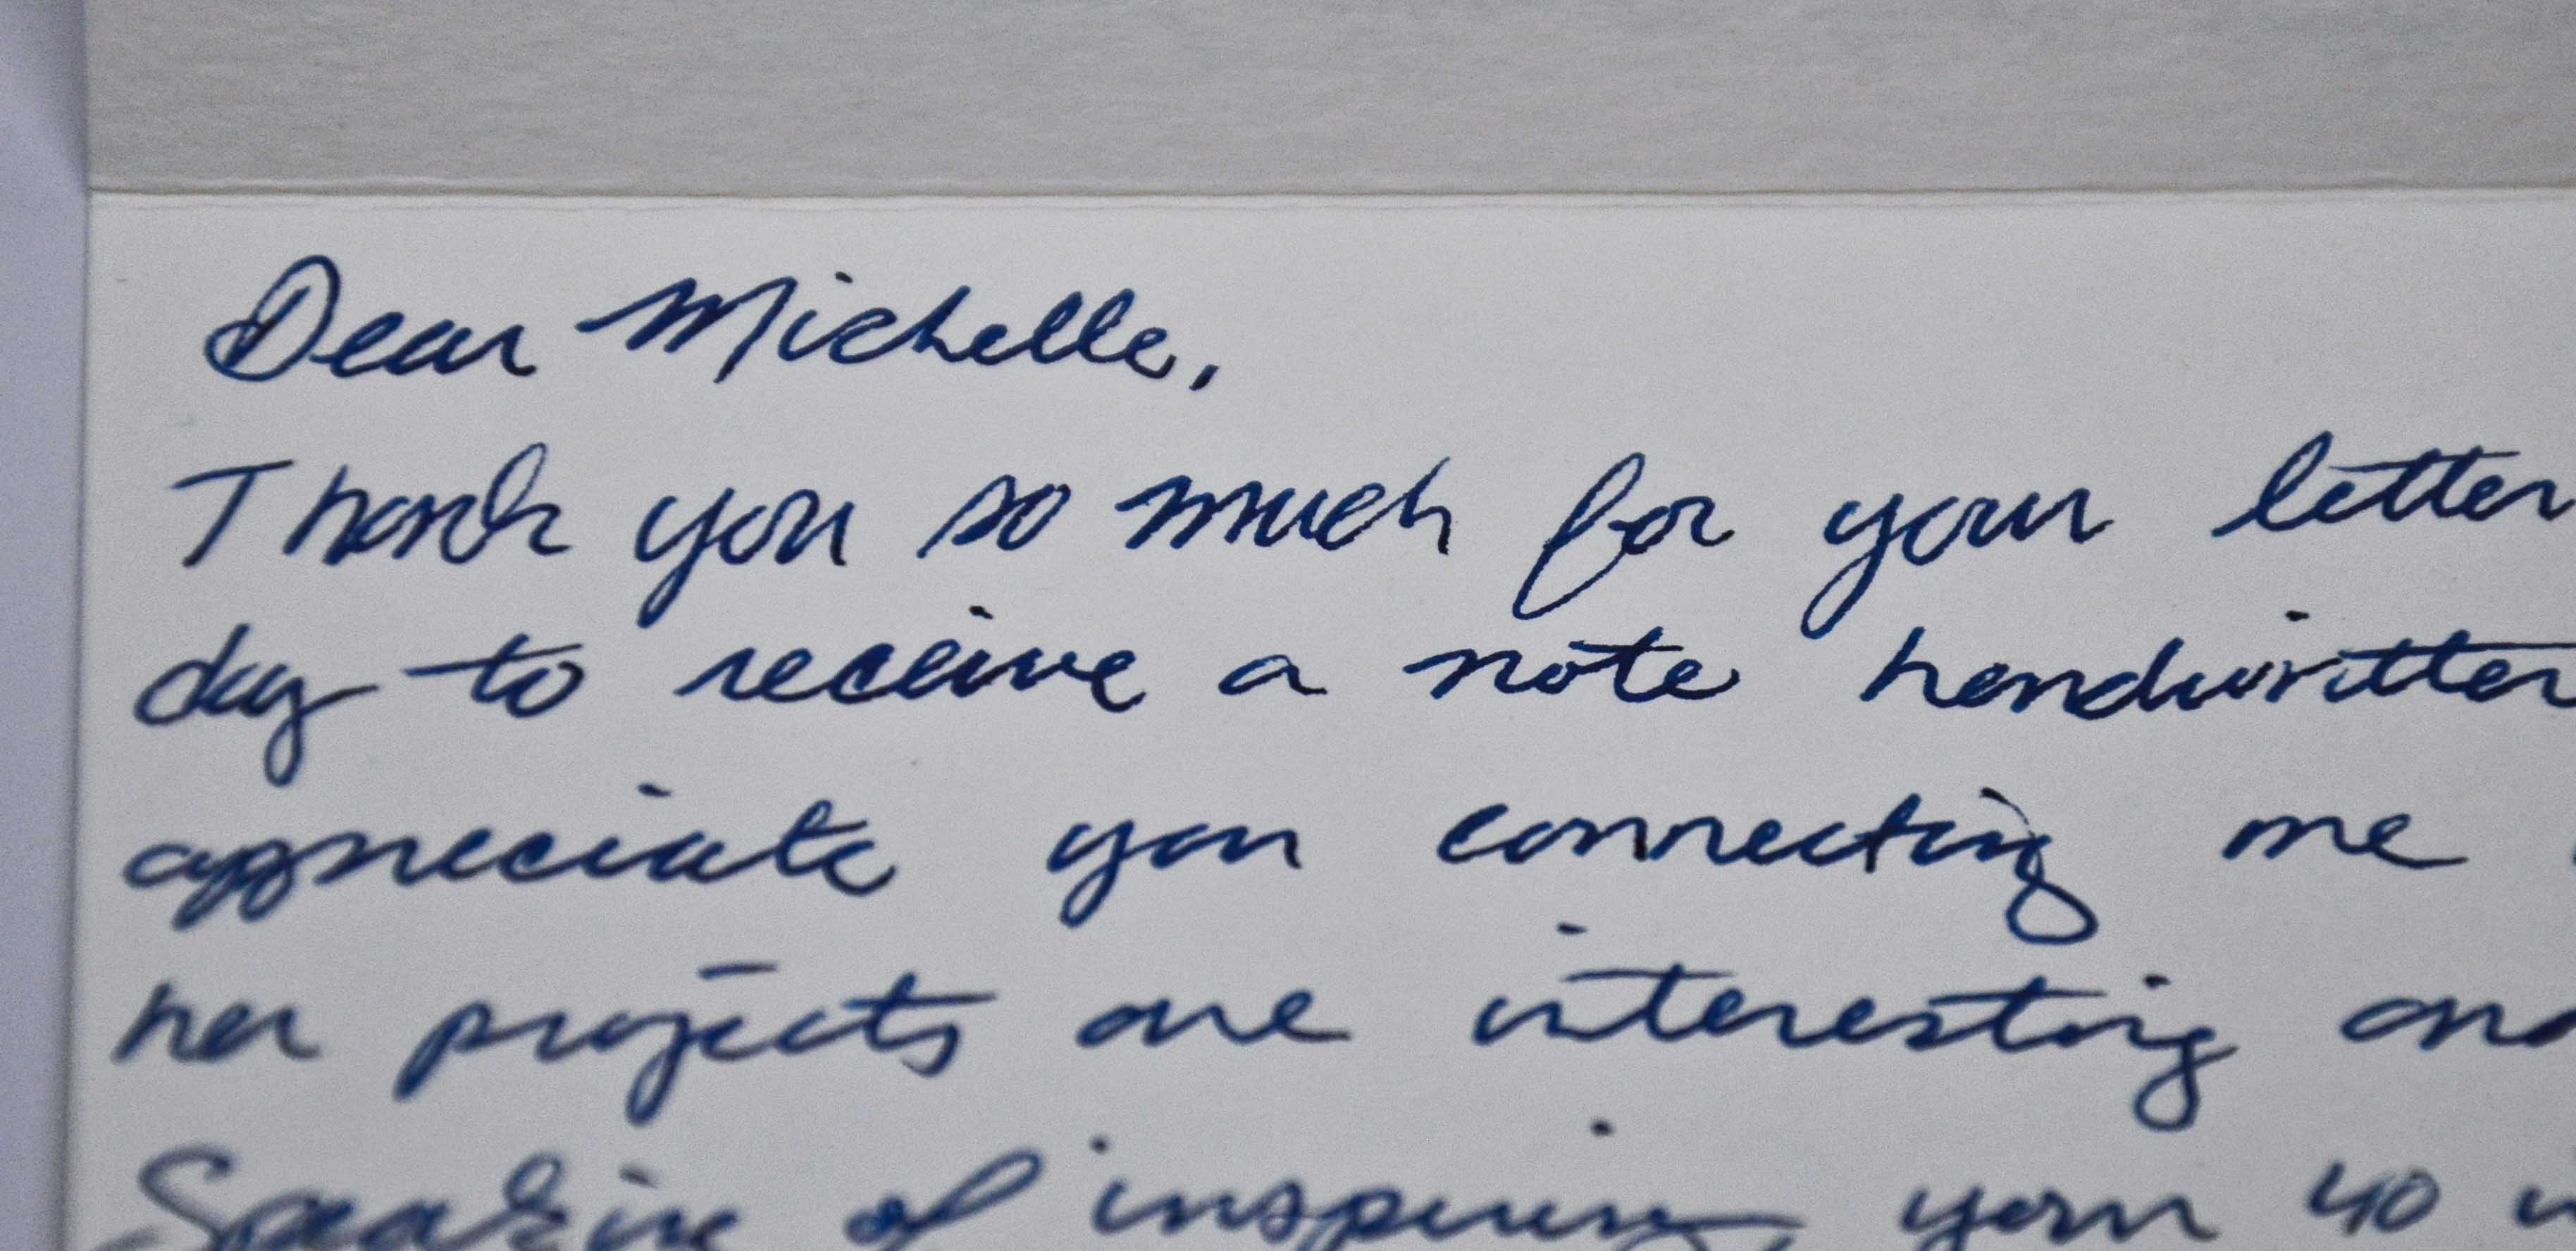 Dear Michelle,
Thank you so much for your letter
day to receive a note handwritten
appreciate you connecting me
her projects are interesting and
Speaking of inspiring your 40